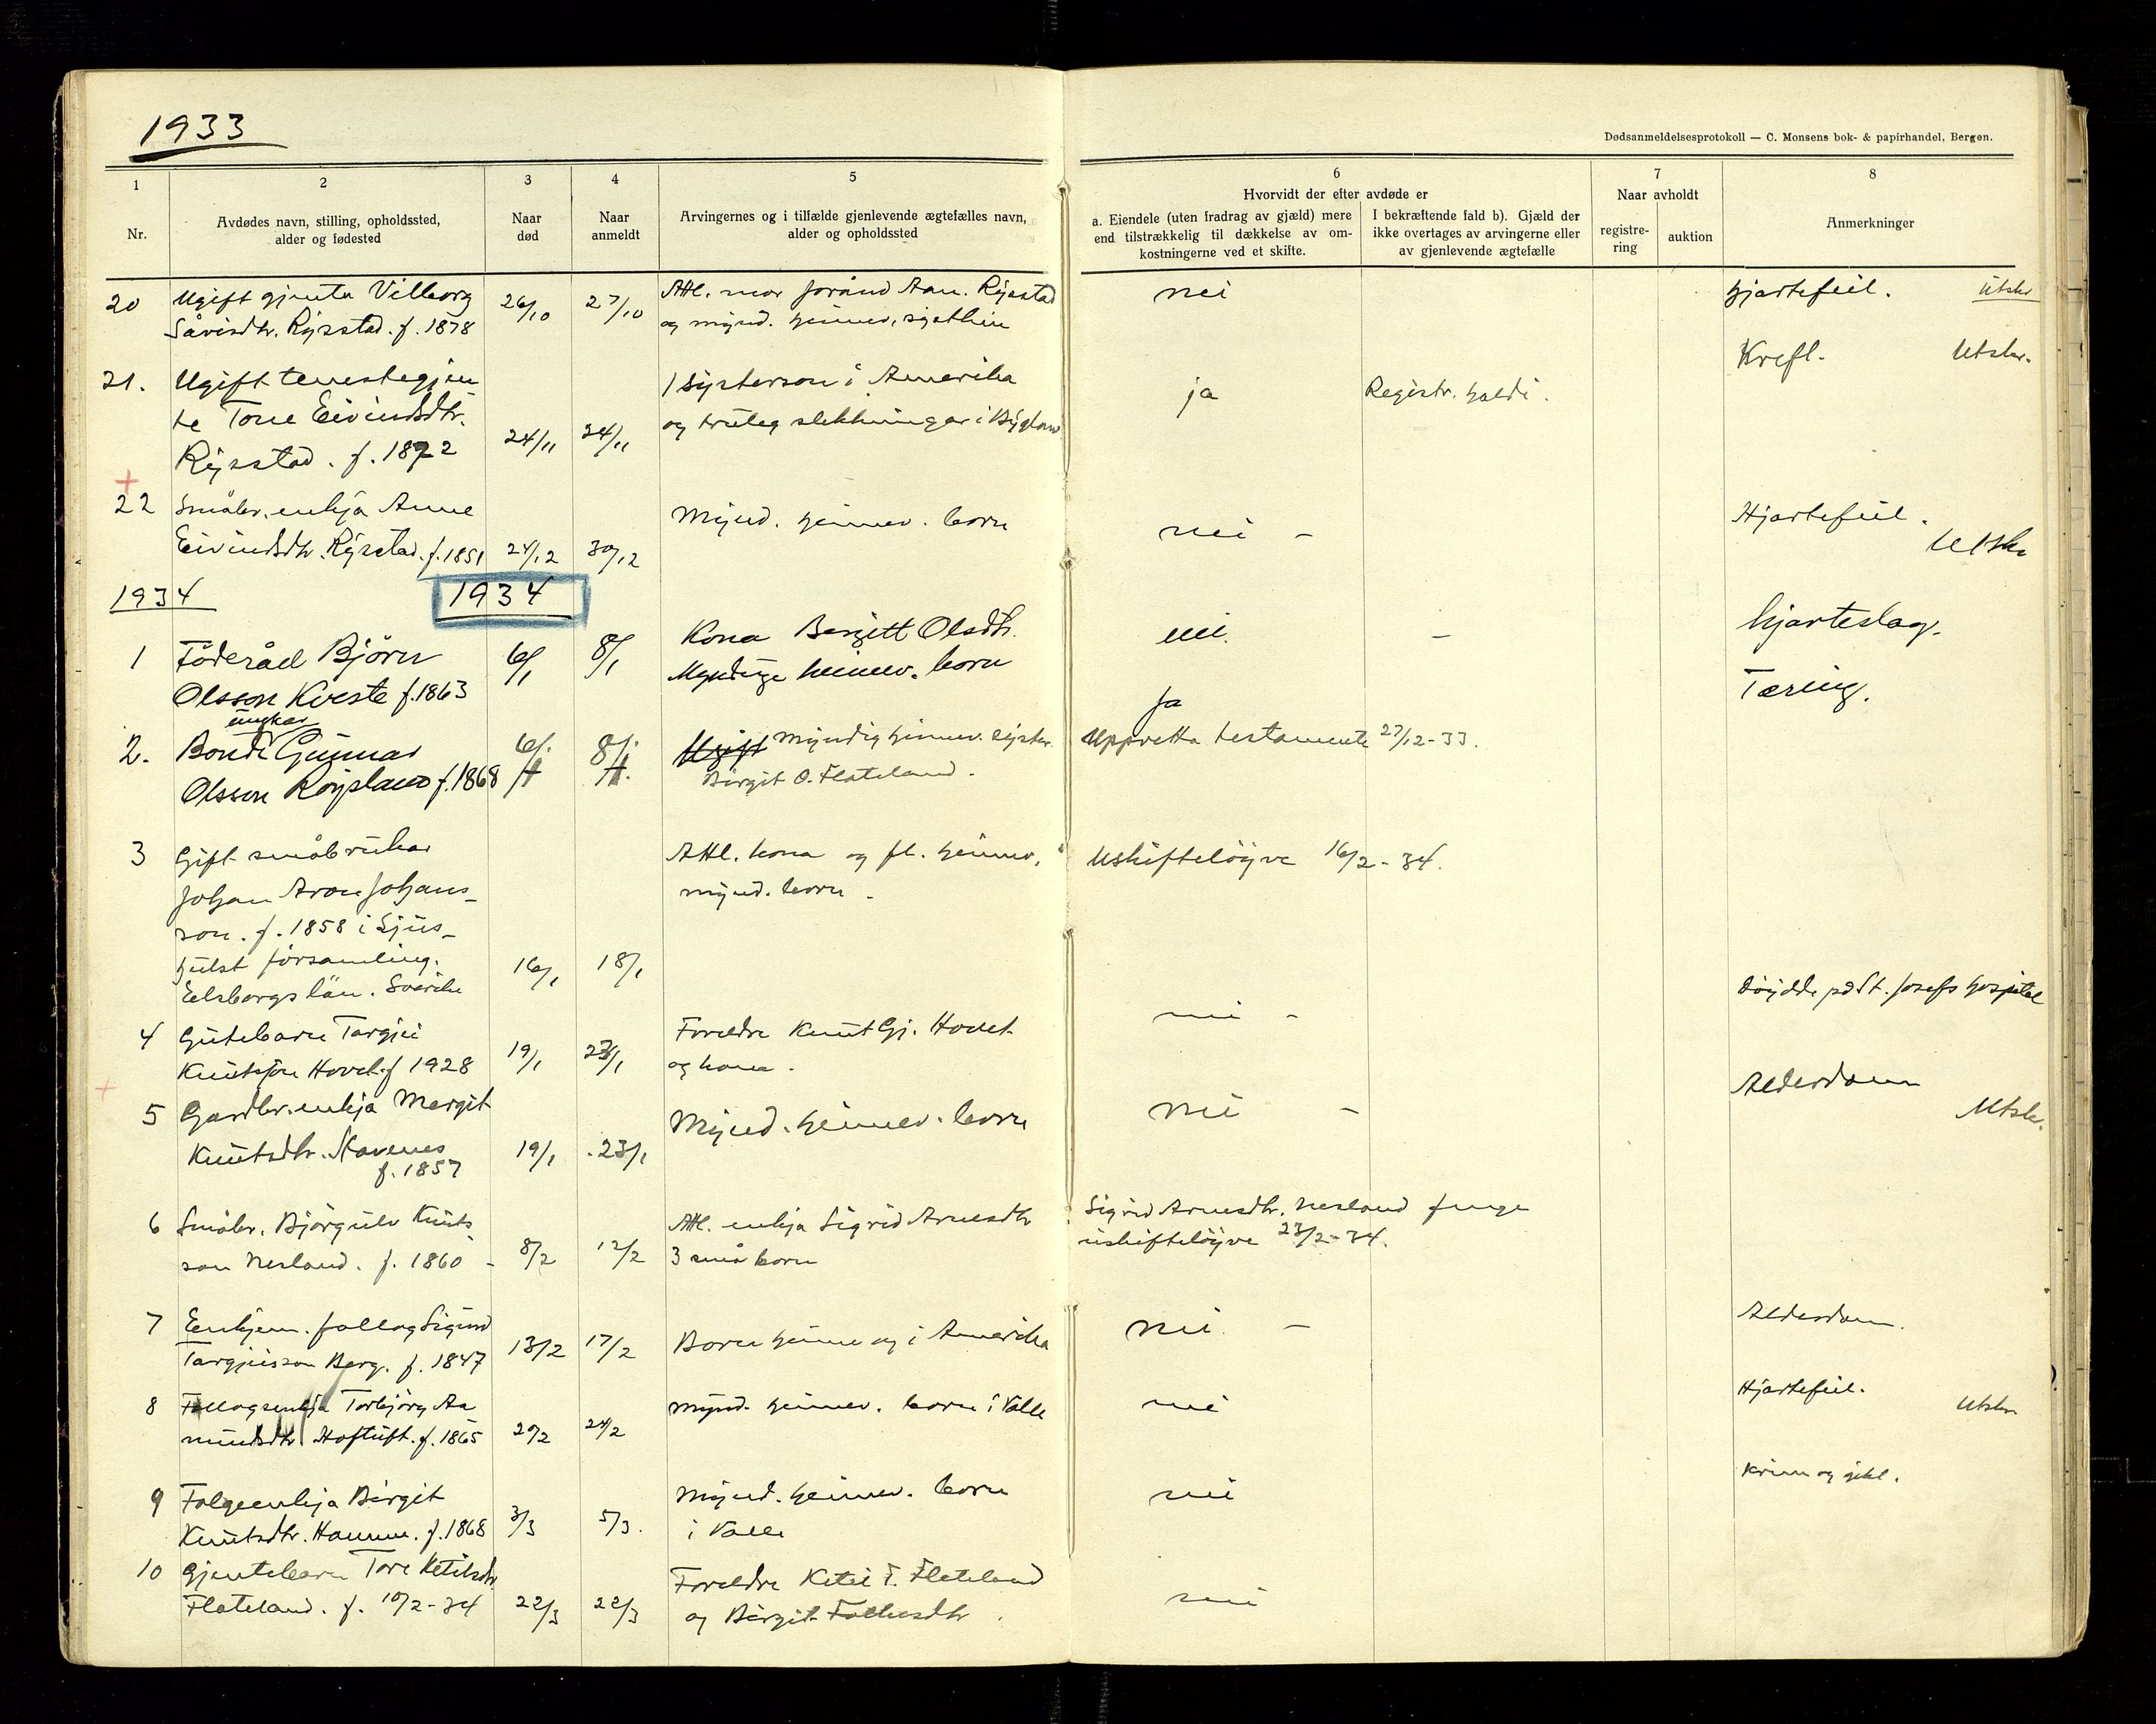 1933
Dødsanmeldelsesprotokoll — C. Monsens bok- & papirhandel, Bergen.
1 2 3 4 5 6 7 8
Nr.
Avdødes navn, stilling, opholdssted,
alder og fødested
Naar
død
Naar
anmeldt
Arvingernes og i tilfælde gjenlevende ægtefælles navn,
alder og opholdssted
Hvorvidt der efter avdøde er
a. Eiendele (uten fradrag av gjæld) mere
end tilstrækkelig til dækkelse av om-
kostningerne ved et skifte.
I bekræftende fald b). Gjæld der
ikke overtages av arvingerne eller
av gjenlevende ægtefælle
Naar avholdt
registre-
ring
auktion
Anmerkninger
20 Ugift gjenta Vilborg
Såvisdtr. Rysstad. f. 1878
26/10 27/10
Attl. mor Jorånd Aan. Rysstad
og mynd. heimev. systkin
nei
Hjartefeil. Utskr
21. Ugift tenestegjen-
te Tone Eivindsdtr.
Rysstad. f. 1872
24/11 24/11
1 systerson i Amerika
og truleg slektningar i Bygland
ja
Registr. haldi.
Kreft. Utskr.
22 Småbr. enkja Anne
Eivindsdtr. Rysstad. f. 1851
24/12 30/12
Mynd. heimev. born
nei -
Hjartefeil.
Utskr
1934 1934
1 Föderåd Björn
Olsson Kveste f. 1863
6/1 8/1
Kona Bergitt Olsdtr.
Myndige heimev. born
nei. -
hjarteslag.
2. Bonde ungkar Gunnar
Olsson Röysland f. 1868
6/1 8/1
Ugift Myndig heimev. syster.
Birgit O. Flateland.
Ja
Uppretta testamente 27/12-33.
Tæring.
3 Gift småbrukar
Johan Aron Johans-
son. f. 1858 i Ljus-
hulst församling.
Elsborgs län. Sverike
16/1 18/1
Attl. kona og fl. heimev.
mynd. born -
Uskiftelöyve 16/2-34.
4 Gutebarn Targjei
Knutsson Hovet. f 1928
19/1 23/1
Foreldre Knut Gj. Hovet
og kona.
nei -
Döydde på St. Josefs hospital
5 Gardbr. enkja Margit
Knutsdtr. Stavenes
f. 1857
19/1 23/1
Mynd. heimev. born
nei -
Alderdom
Utskr.
6 Småbr. Björgulv Knuts
son Nesland. f. 1860 -
8/2 12/2
Attl. enkja Sigrid Arnesdtr
3 små born
Sigrid Arnesdtr. Nesland fenge
uskiftelöyve 23/2-34.
7 Enkjem. follog Sigurd
Targjeisson Berg. f. 1847
13/2 17/2
Born heime og i Amerika
nei. -
Alderdom.
8 Follogsenkja Torbjörg Aa
mundsdtr. Haftuft. f. 1865
20/2 24/2
mynd. heimev. born i Valle
nei
Hjartefeil.
Utskr
9 Folgeenkja Birgit
Knutsdtr. Homme. f. 1868
3/3 5/3.
Mynd. heimev. born
i Valle
nei
Krim og gikt.
10 Gjentebarn Tore Ketilsdtr
Flateland. f. 10/2-34
22/3 22/3
Foreldre Ketil T. Flateland
og Birgit Folkesdtr.
nei